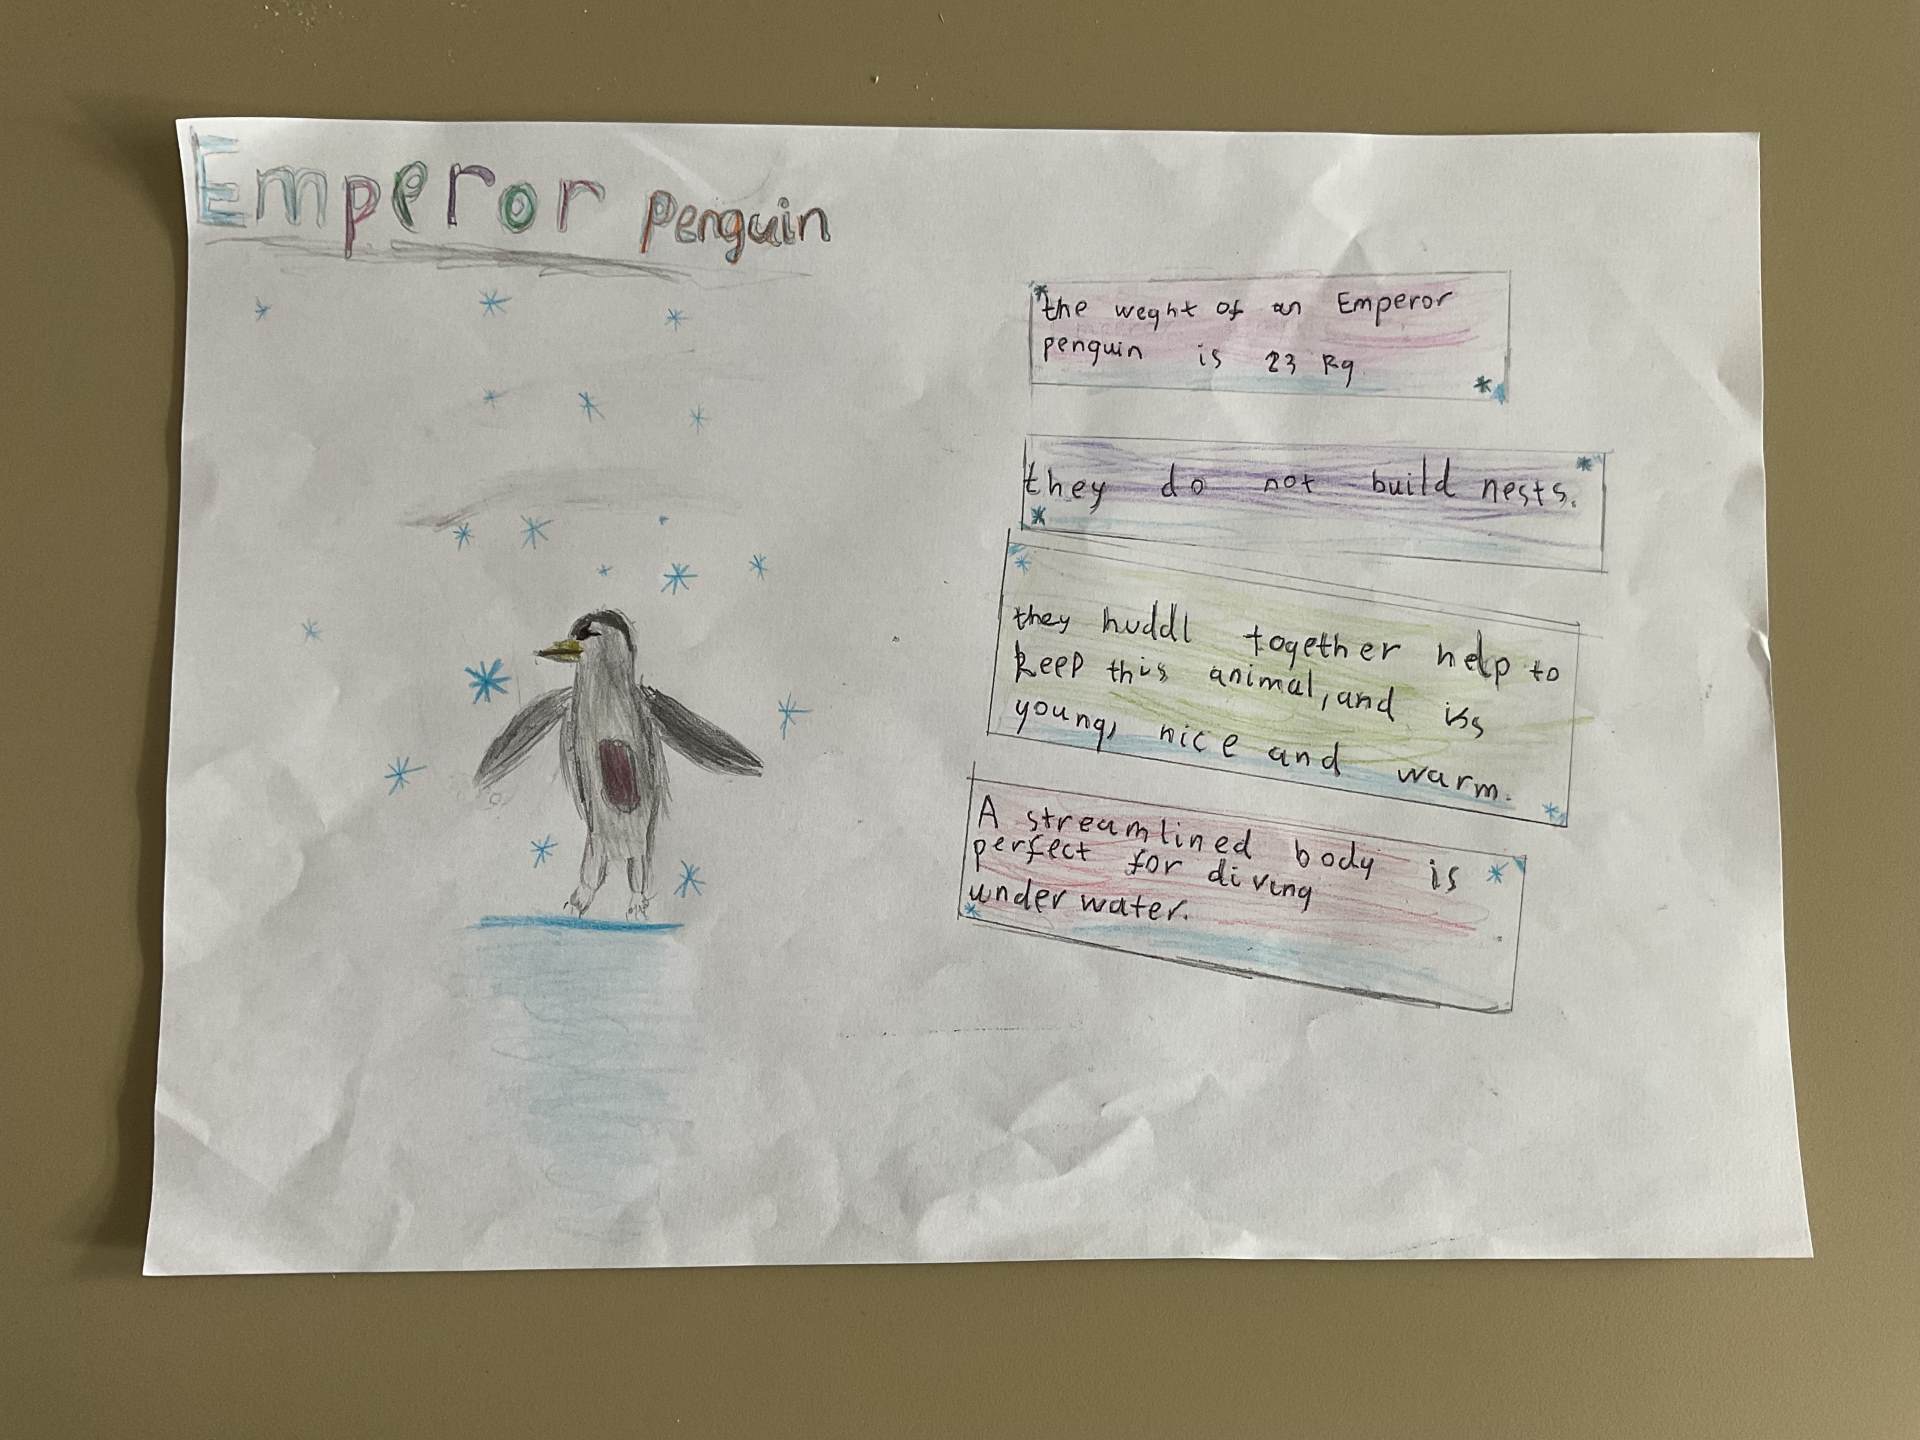 Emperor penguin
the weght of an Emperor
penguin is 23 kg
they do not build nests.
they huddl together help to
keep this animal, and iss
young, nice and warm.
A streamlined body is
perfect for diving
under water.